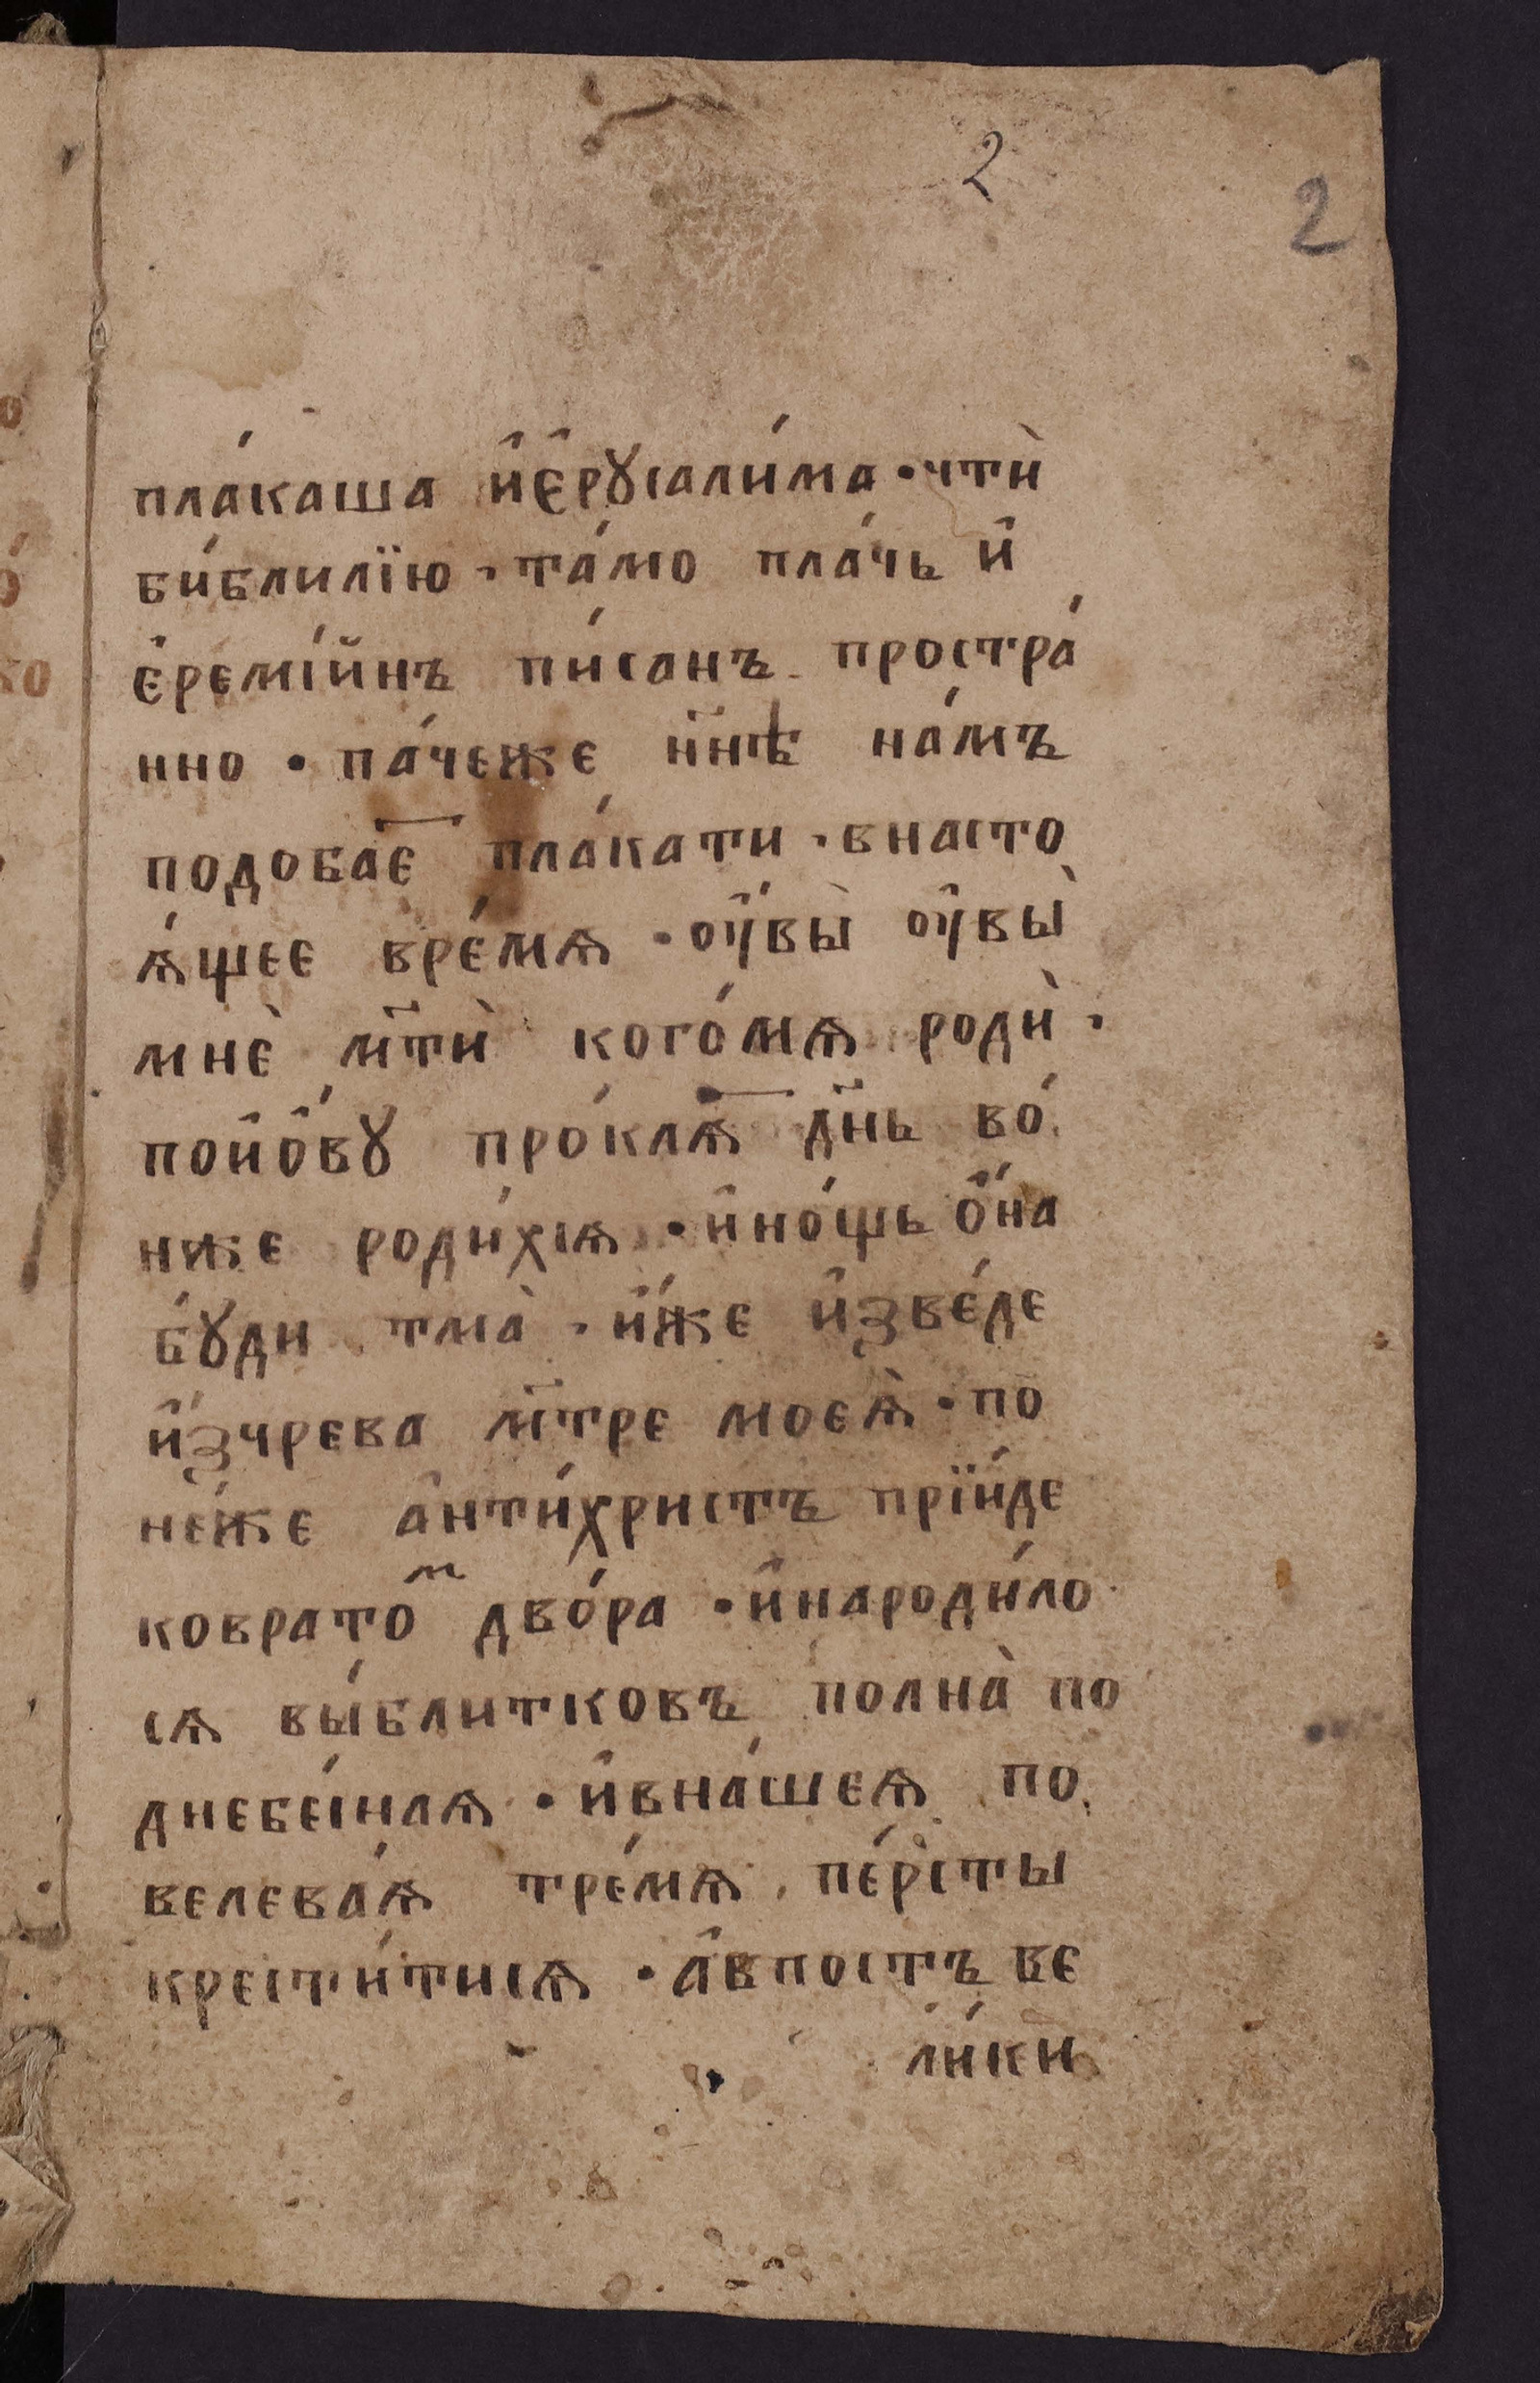 2
2
пла́каша и҆є҆рꙋсали́ма · чтѝ
би́блилїю · та́мо пла́чь и҆
є҆ремі́йнъ пи́санъ простра́
нно · па́чеже нн҃ѣ на́мъ
подоба́є пла́кати · внасто
ѧ́щее вре́мѧ · оу҆вы̀ оу҆вы̀
мнѐ мт҃и кого́мѧ родѝ ·
пои҆о҆́вꙋ про́клѧ дн҃ь во́
ниже роди́хсѧ · и҆но́щь ѻ҆́на
бꙋ́ди тма̀ · и҆́же и҆зве́де
и҆зчрева мт҃ре моеѧ̀ · по
не́же а҆нти́христъ прїи́де
ковратоⷨ дво́ра · и҆народи́ло
сѧ вы́блитковъ полна̀ по
днебе́снаѧ · и҆вна́шеѧ по
велева́ѧ тре́мѧ пе́рсты
крести́тисѧ · а҆впостъ ве
ли́ки